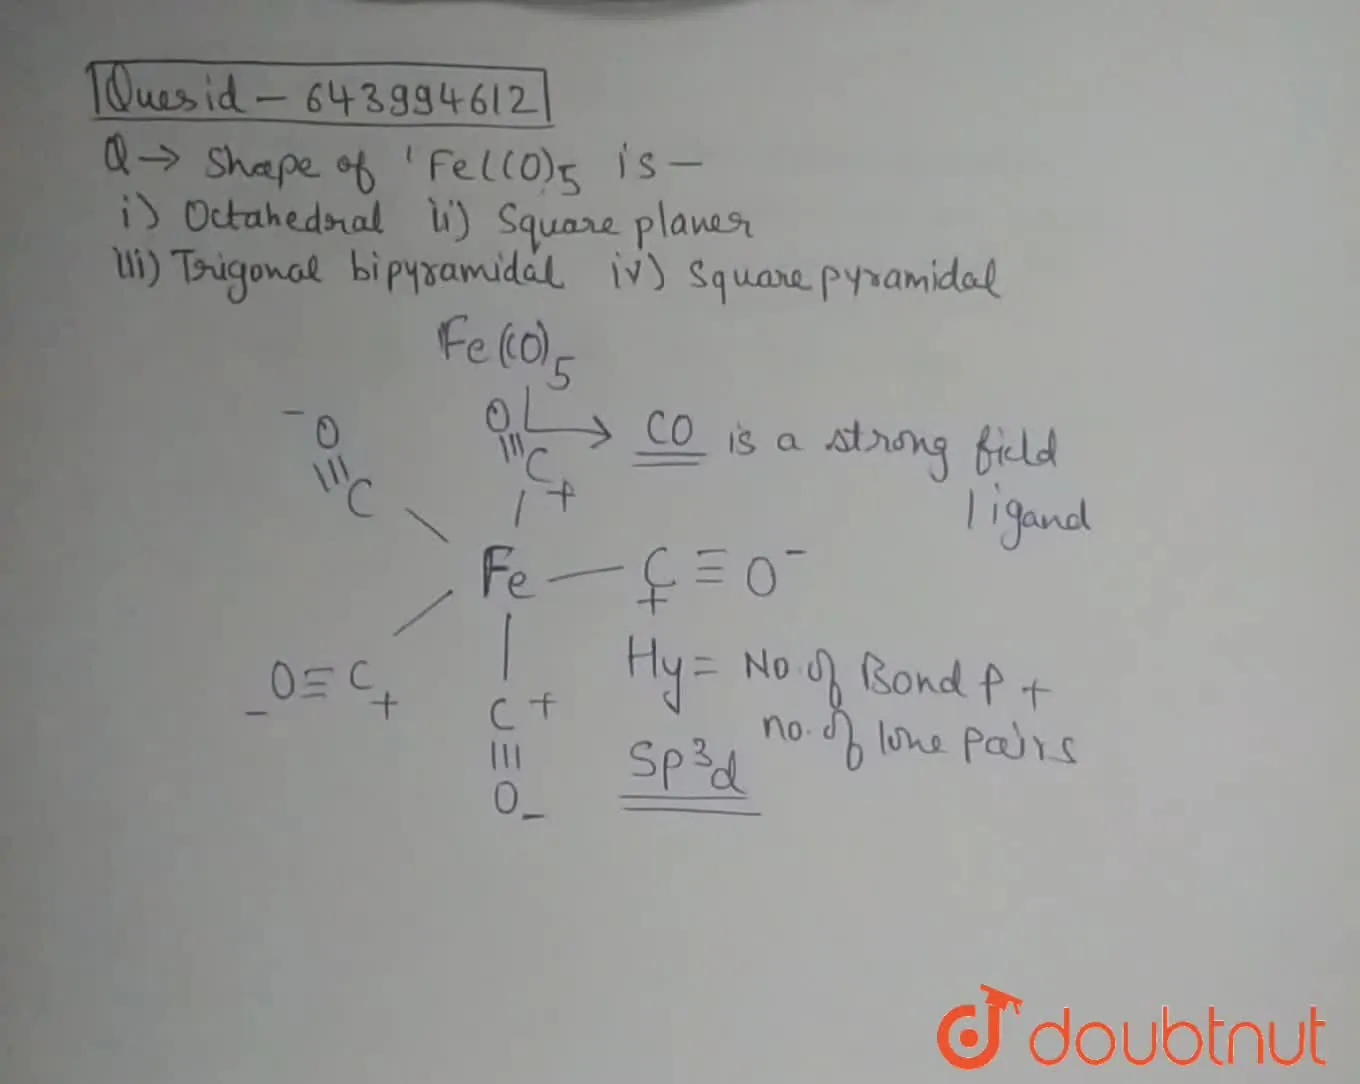 Ques id - 643994612
Q → Shape of 'Fe(CO)5 is -
i) Octahedral ii) Square planer
iii) Trigonal bipyramidal iv) Square pyramidal
Fe(CO)5
→ CO is a strong field
ligand
-O≡C
O≡C+
Fe - C+≡O-
-O≡C+
C+≡O-
Hy = No. of Bond P +
no. of lone pairs
Sp3d
doubtnut